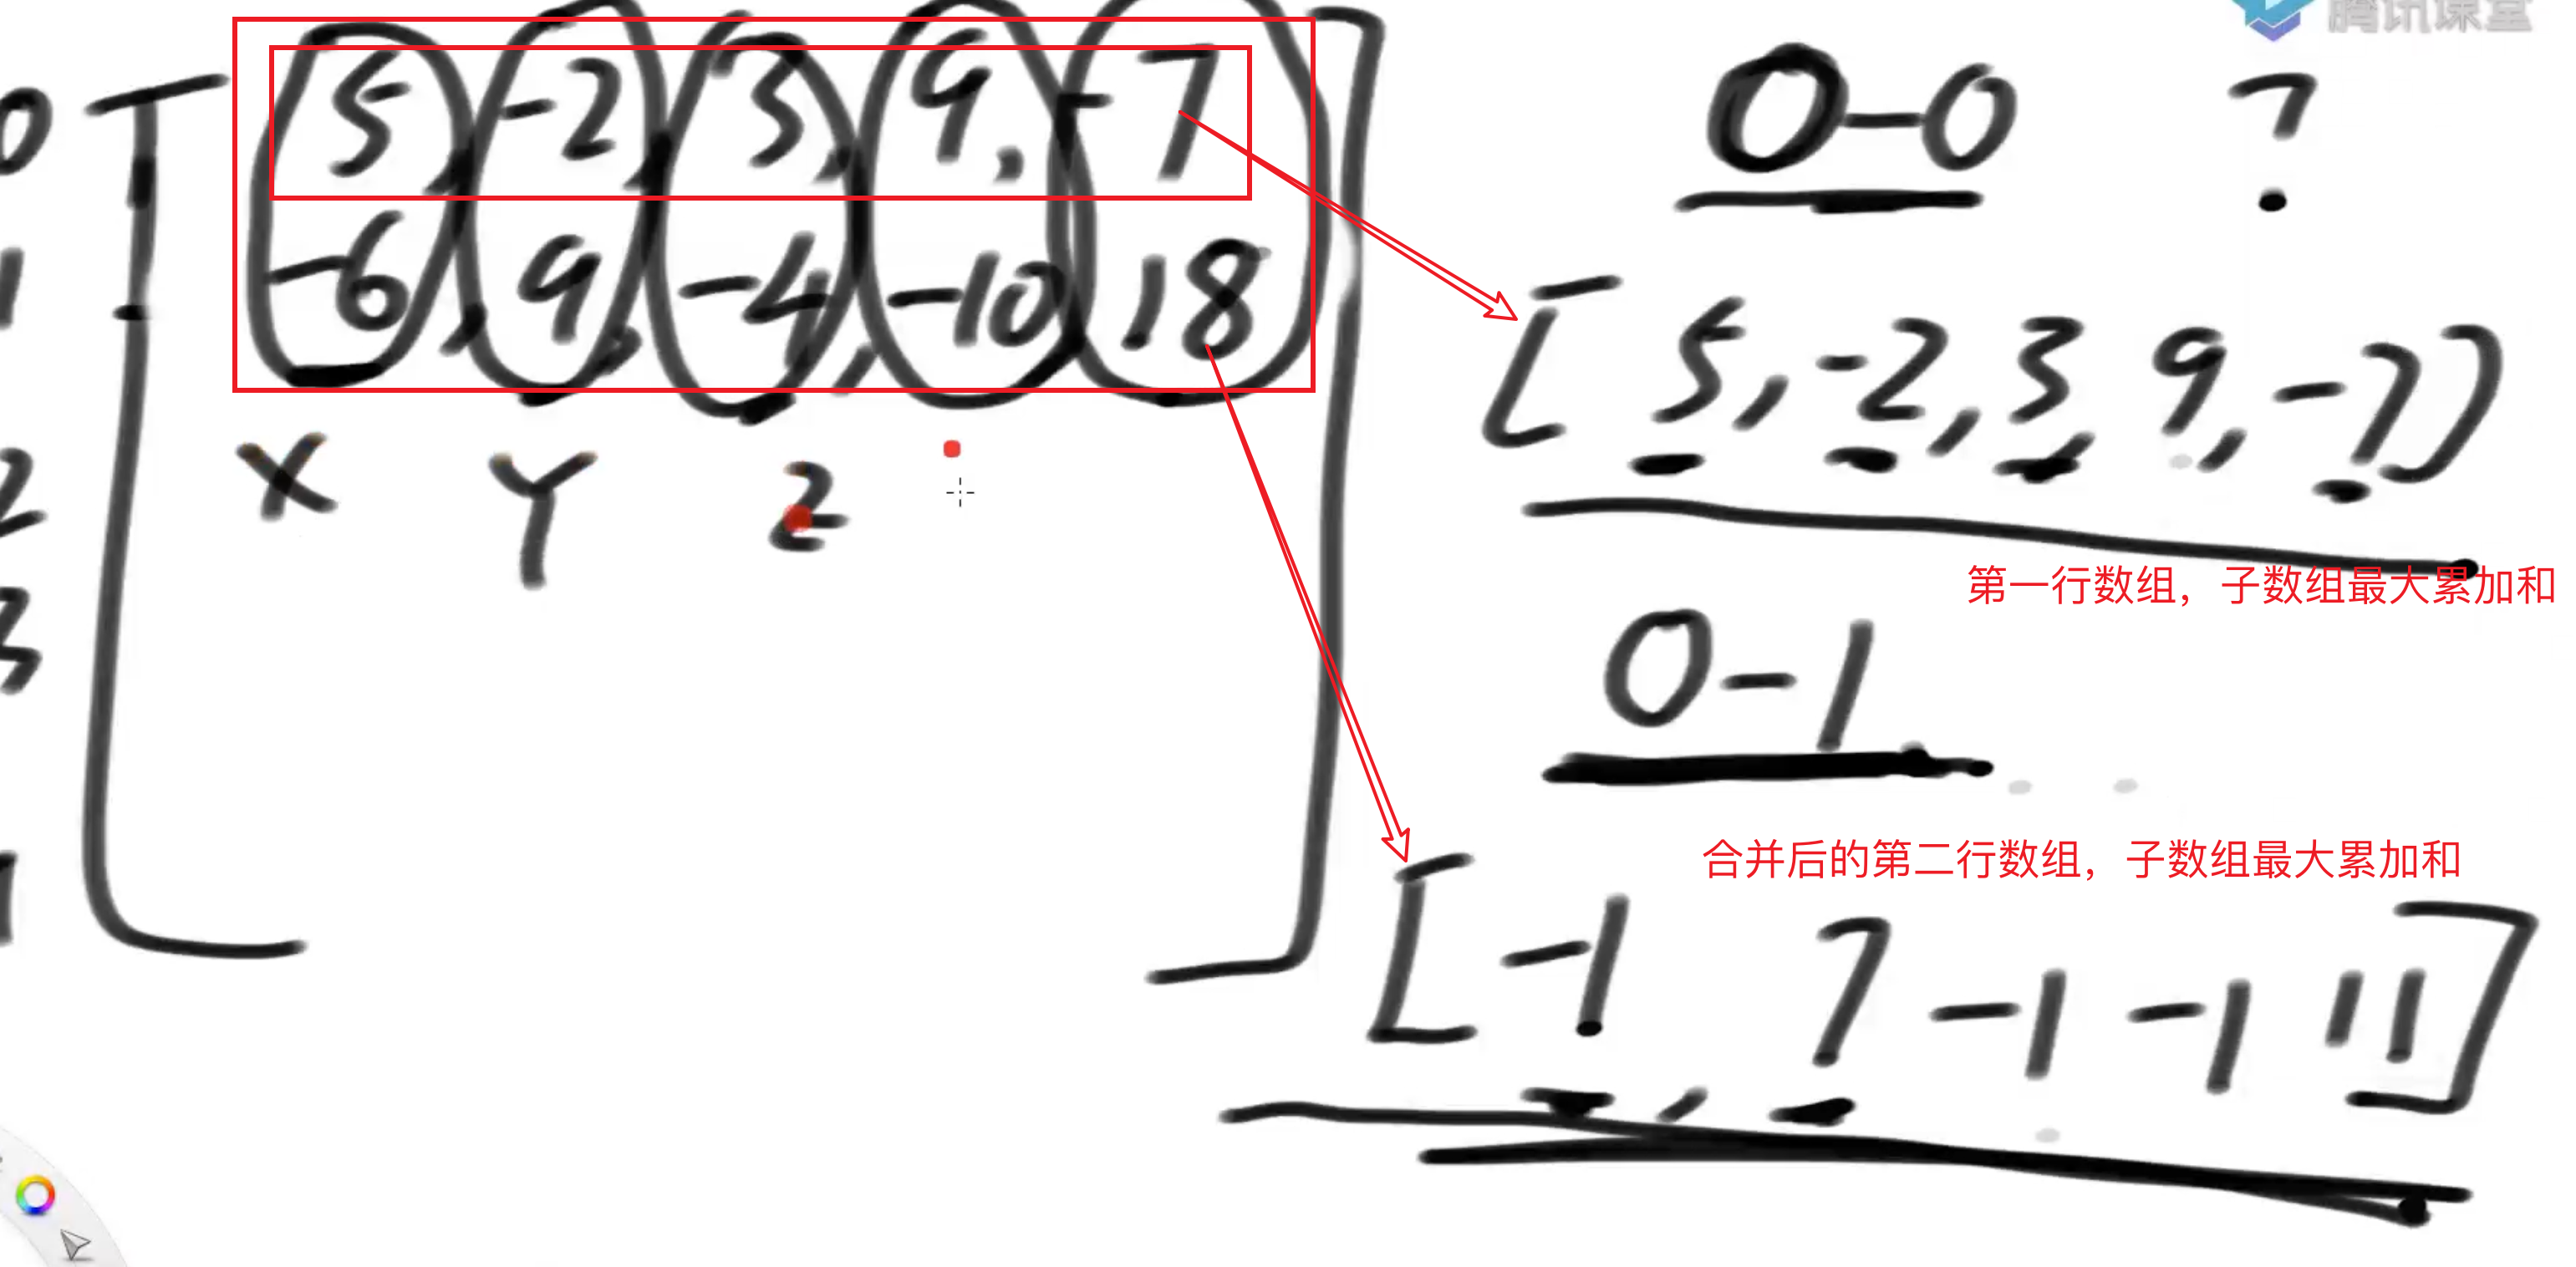 腾讯课堂
0 5, -2, 3, 9, -7
1 -6, 9, -4, -10, 18
2 X Y Z
3
0-0 ?
[5, -2, 3, 9, -7]
第一行数组，子数组最大累加和
0-1
合并后的第二行数组，子数组最大累加和
[-1, 7 -1 -1 11]